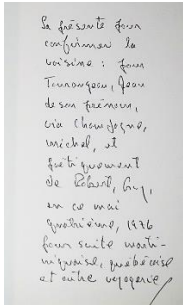 La présente pour
confirmer la
voisine : pour
Tourangeau, Jean
de son prénom,
via Champagne,
michel, et
poétiquement
de Robert, Guy,
en ce mai
quatrième, 1976
pour suite marti-
niquaise, québécoise
et autre voyagerie